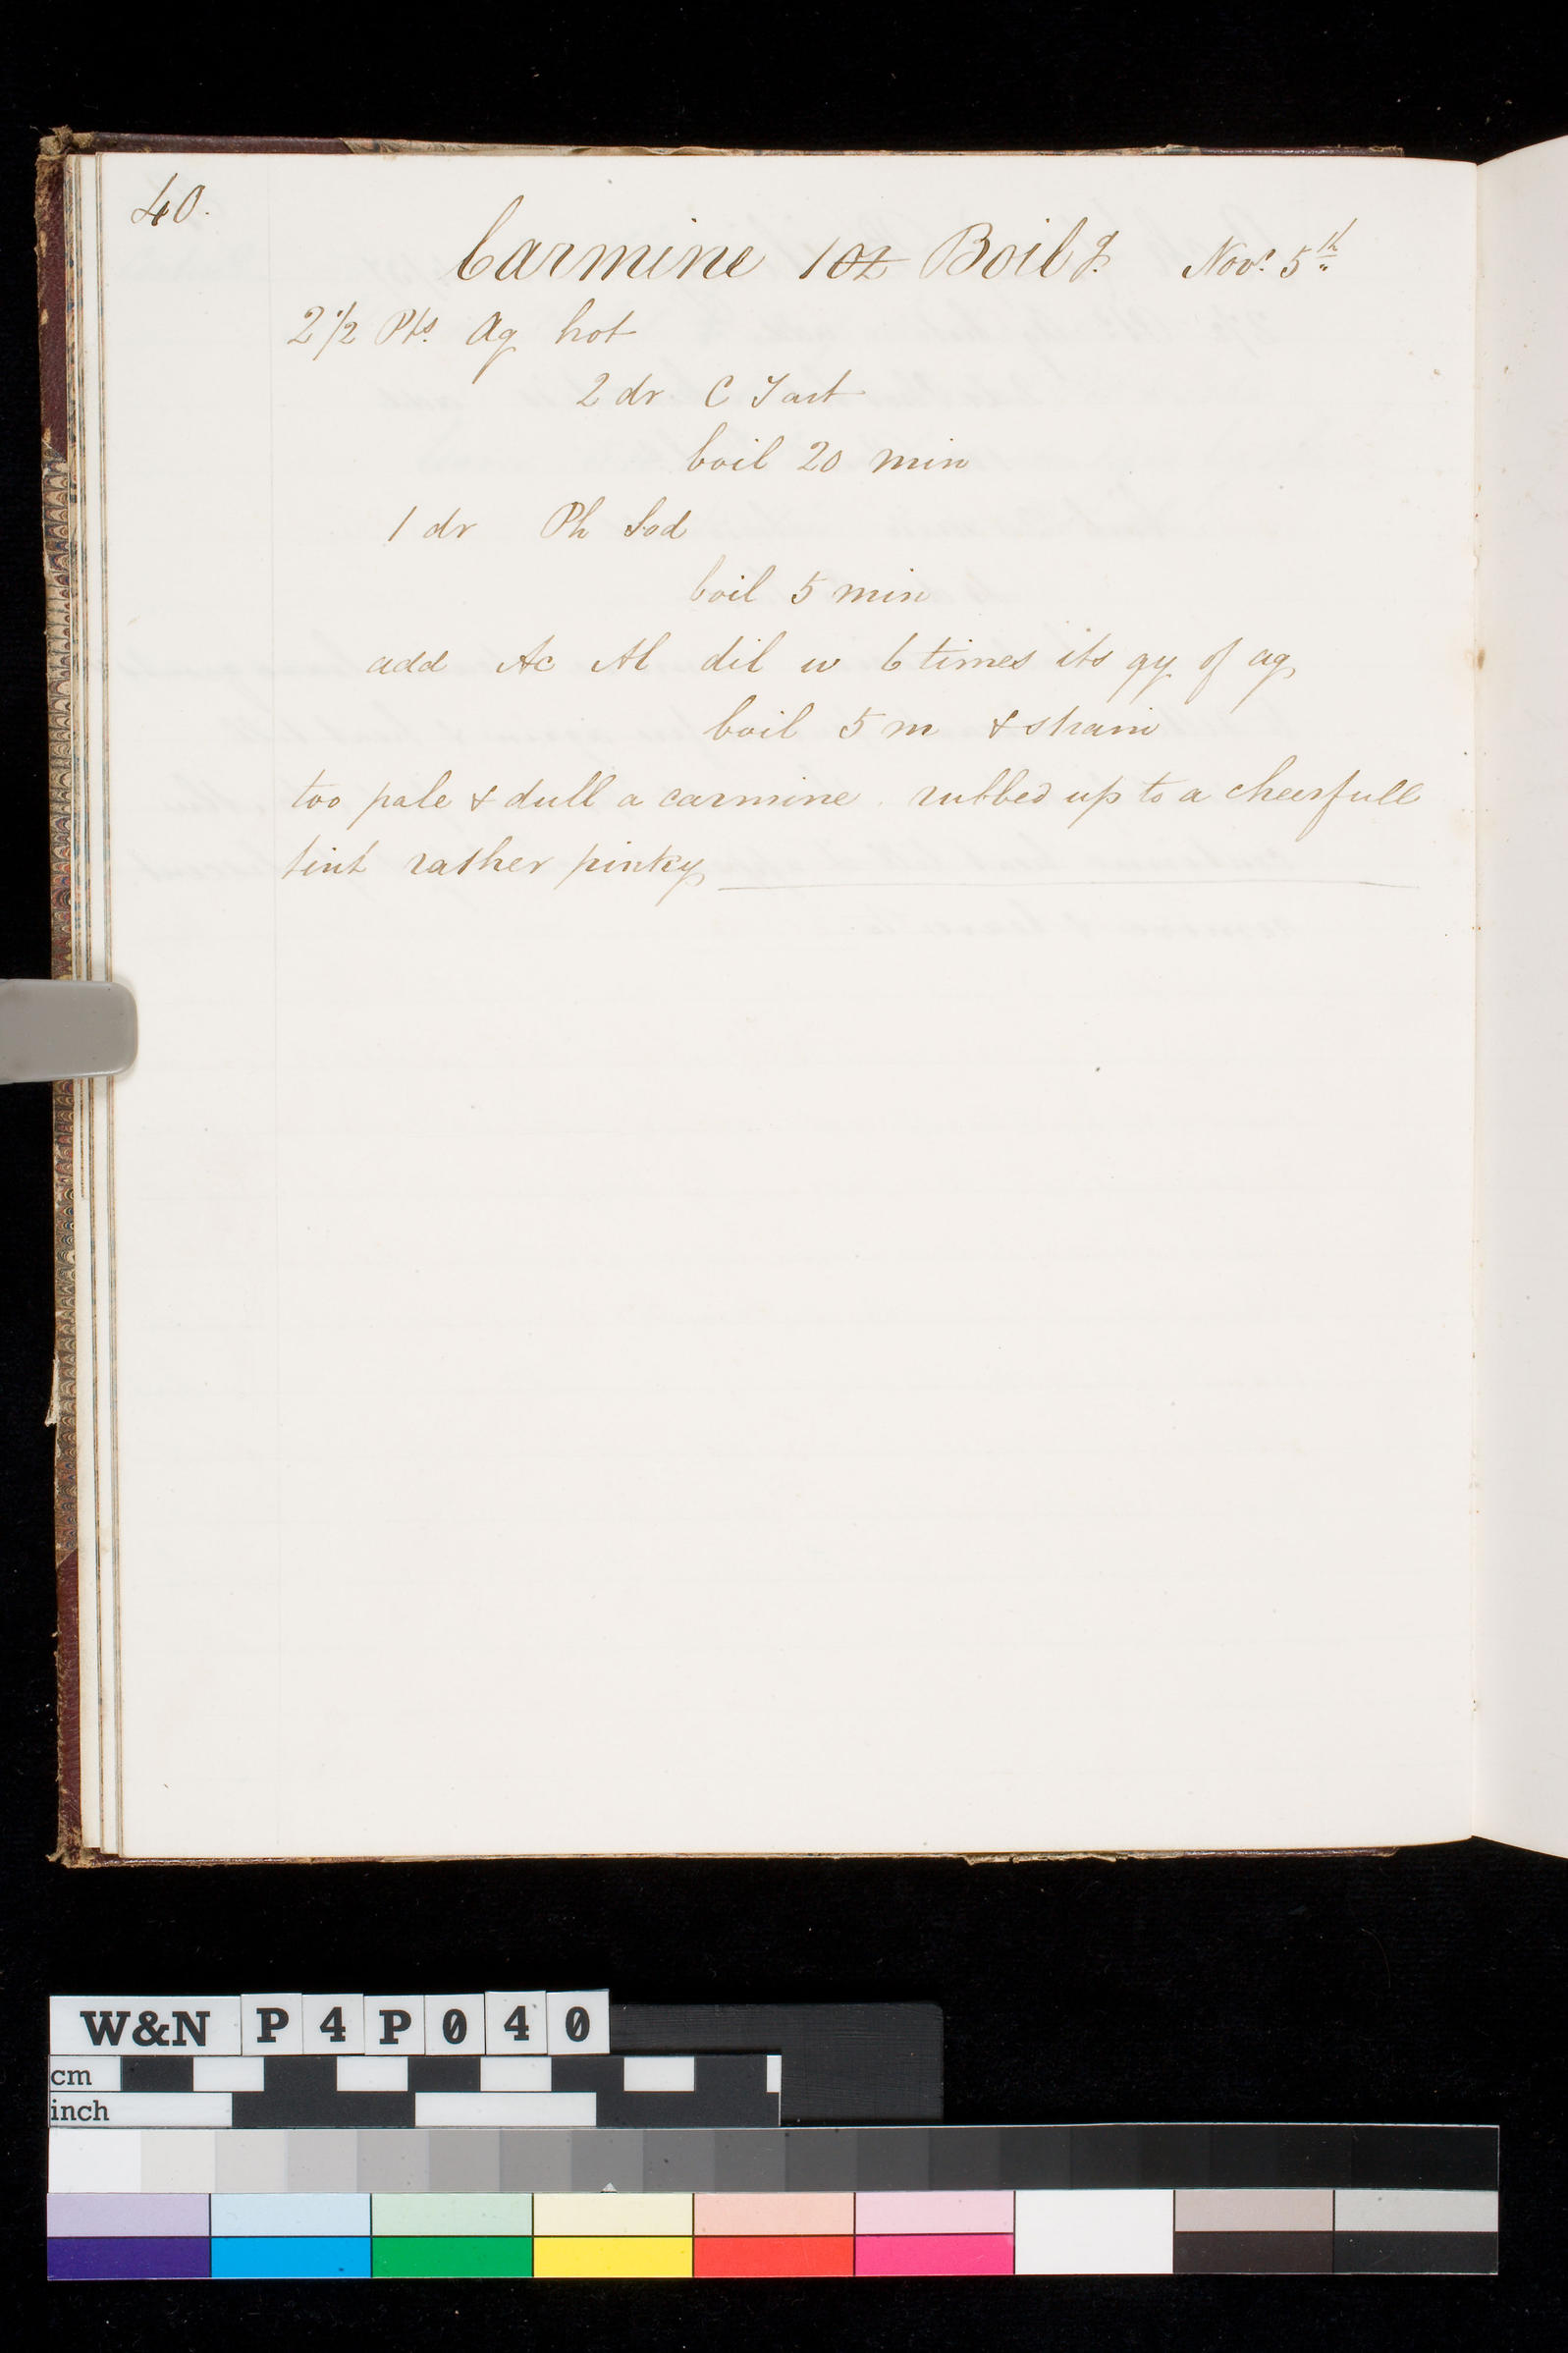 40.
Carmine 1 oz Boilg. Novr. 5th
2 1/2 Pts. Aq hot
2 dr C Tart
boil 20 min
1 dr Ph Sod
boil 5 min
add Ac Al dil w 6 times its qy of aq
boil 5 m & strain
too pale & dull a carmine. rubbed up to a cheerfull
tint rather pinky
W&N P4P040
cm
inch